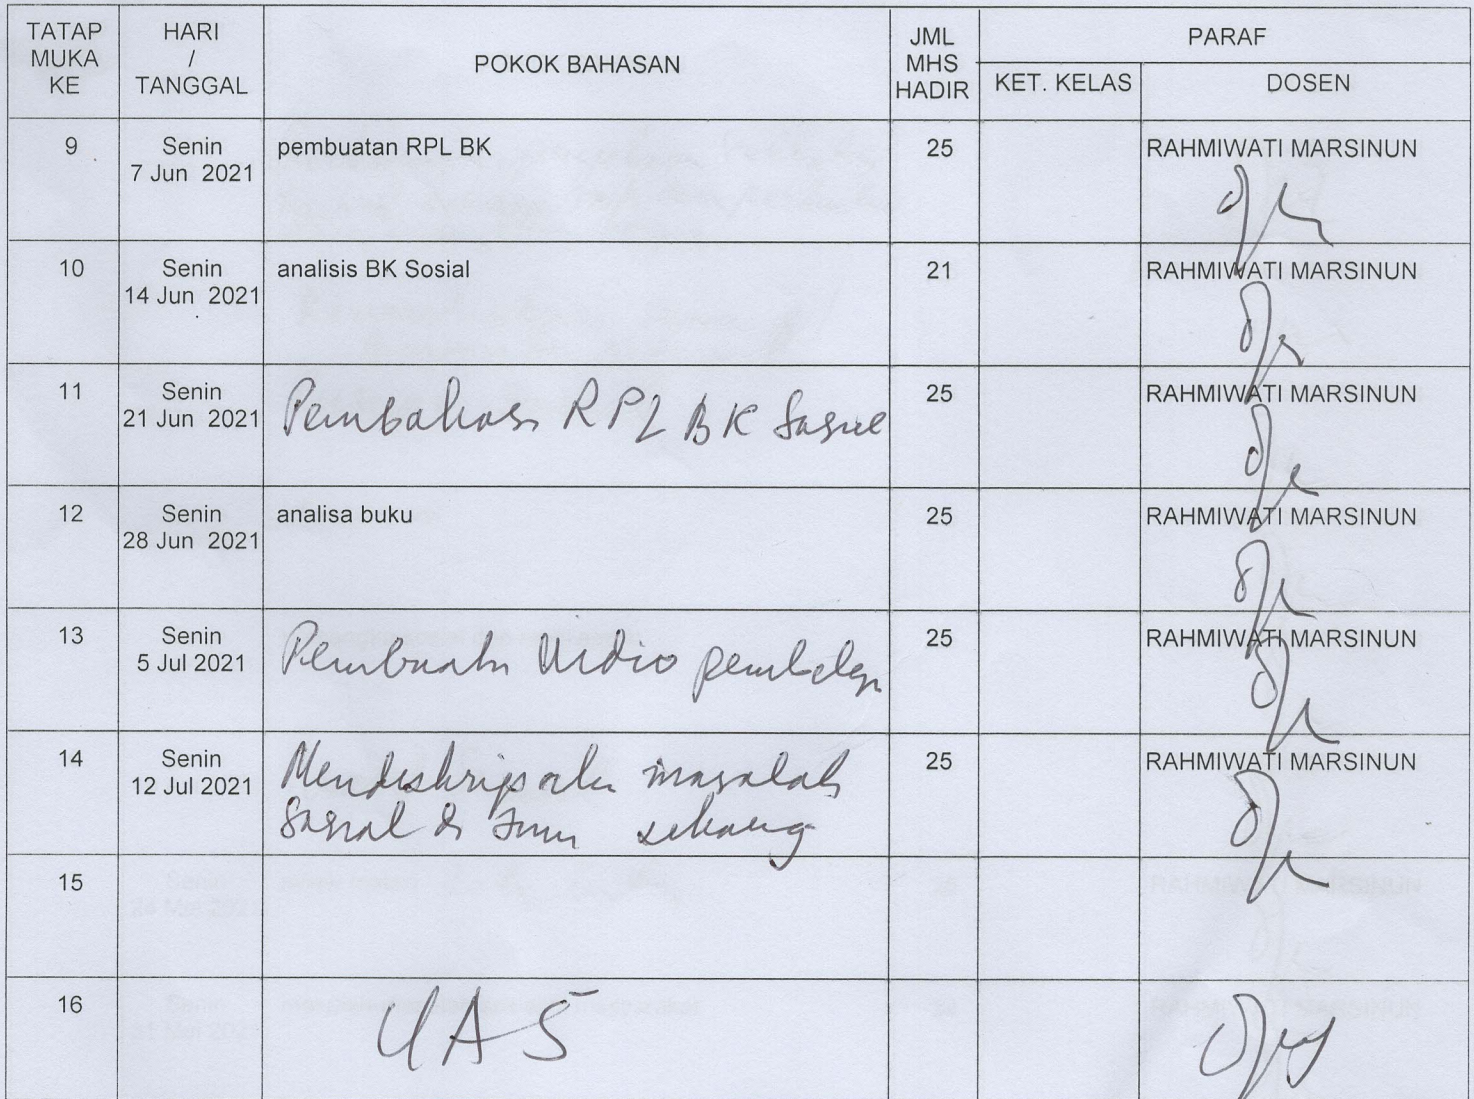 TATAP MUKA KE
HARI / TANGGAL
POKOK BAHASAN
JML MHS HADIR
PARAF
KET. KELAS
DOSEN
9
Senin
7 Jun 2021
pembuatan RPL BK
25
RAHMIWATI MARSINUN
10
Senin
14 Jun 2021
analisis BK Sosial
21
RAHMIWATI MARSINUN
11
Senin
21 Jun 2021
Pembahasan RPL BK Sosial
25
RAHMIWATI MARSINUN
12
Senin
28 Jun 2021
analisa buku
25
RAHMIWATI MARSINUN
13
Senin
5 Jul 2021
Pembuatan Vidio
25
RAHMIWATI MARSINUN
14
Senin
12 Jul 2021
Mendeskripsikan masalah
Sosial di sekarang
25
RAHMIWATI MARSINUN
15
16
UAS